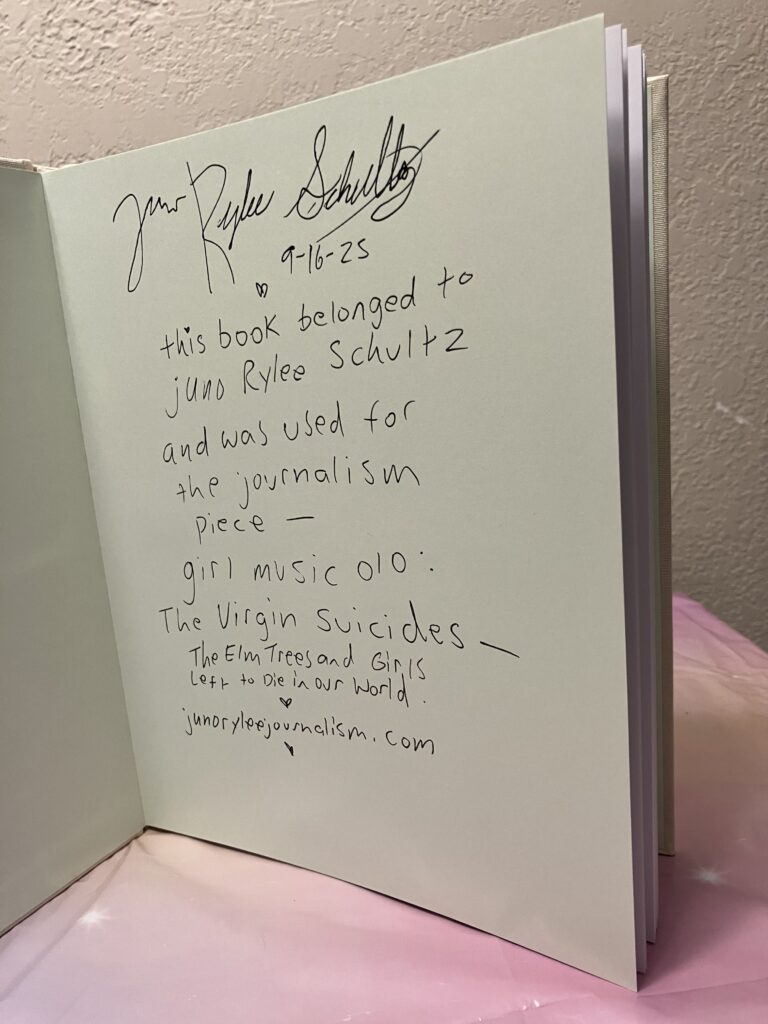 juno Rylee Schultz
9-16-25
this book belonged to
juno Rylee Schultz
and was used for
the journalism
piece —
girl music 010:
The Virgin Suicides —
The Elm Trees and Girls
Left to Die in our World.
junoryleejournalism.com